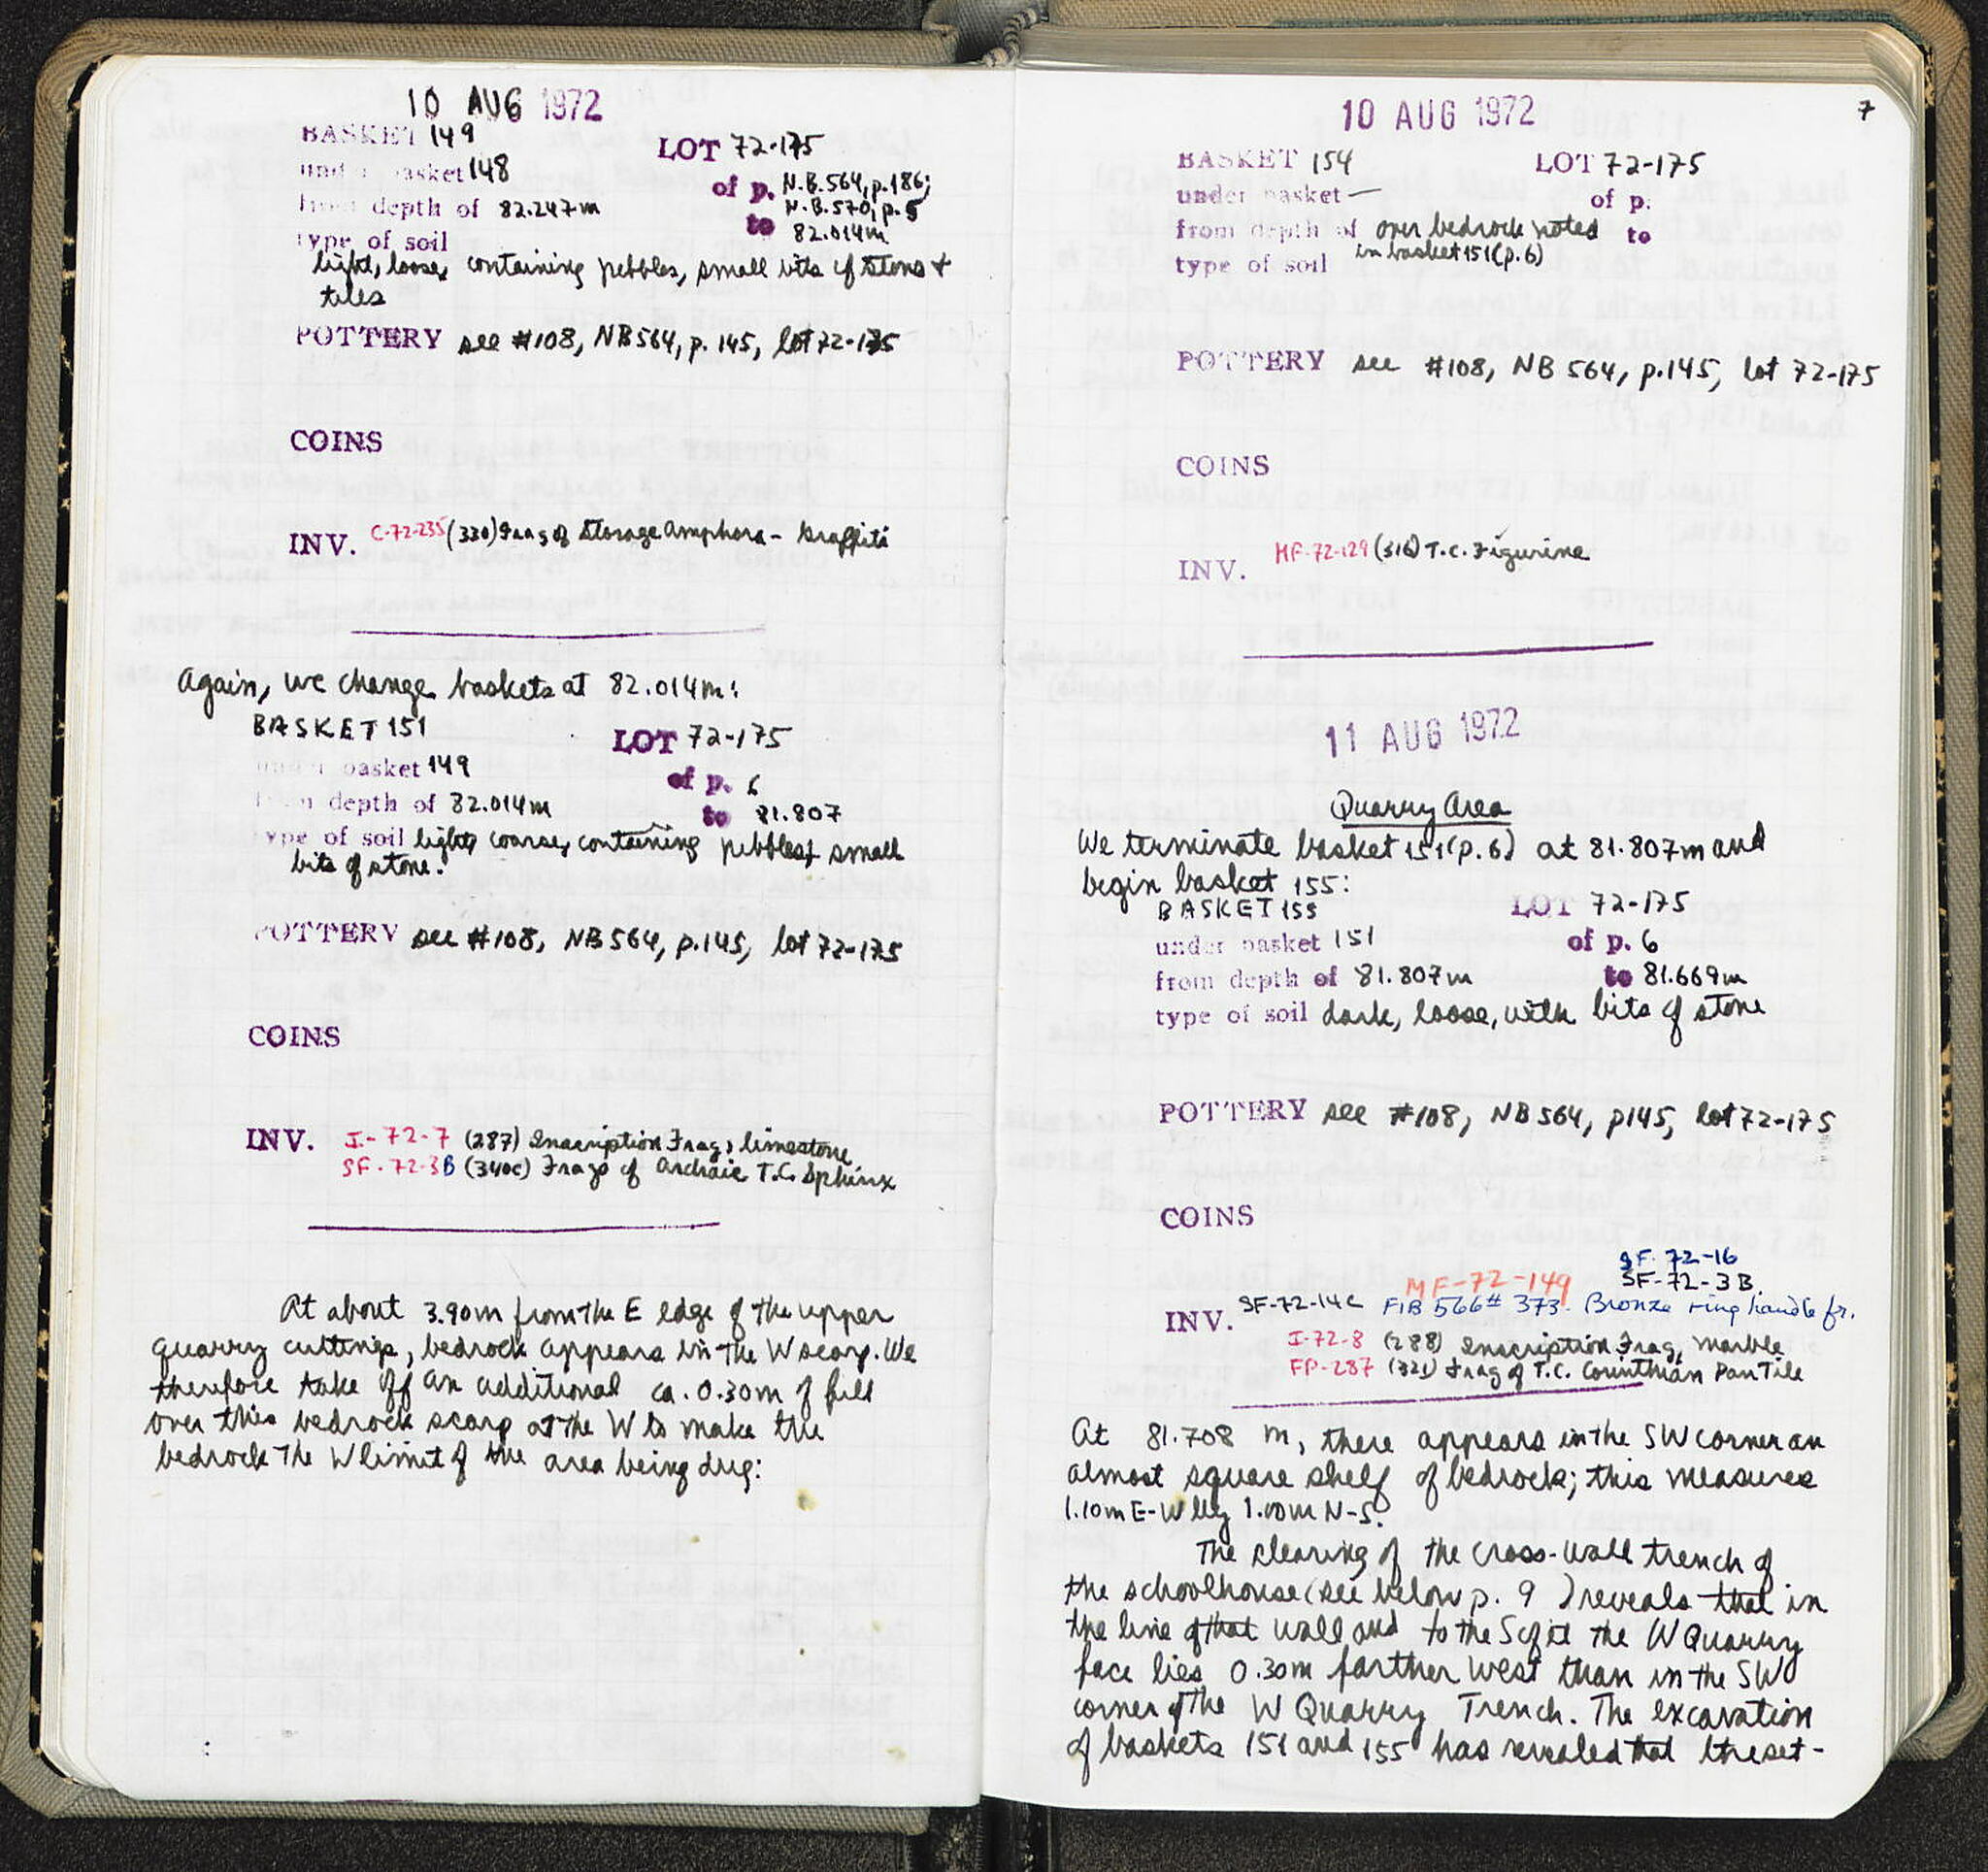 10 AUG 1972
BASKET 149
LOT 72-175
under basket 148
of p. N.B. 564, p. 186;
N.B. 570, p. 5
from depth of 82.247m
to 82.014m
type of soil
light, loose, containing pebbles, small bits of stone +
tiles
POTTERY see #108, NB 564, p. 145, lot 72-175
COINS
INV. C-72-235 (330) Frag of Storage Amphora - Graffiti
Again, we change baskets at 82.014m:
BASKET 151
LOT 72-175
under basket 149
of p. 6
from depth of 82.014m
to 81.807
type of soil light, coarse, containing pebbles + small
bits of stone.
POTTERY see #108, NB 564, p. 145, lot 72-175
COINS
INV. I-72-7 (287) Inscription Frag, limestone
SF-72-3B (340c) Frags of Archaic T.C. Sphinx
At about 3.90m from the E edge of the upper
quarry cuttings, bedrock appears in the W scarp. We
therefore take off an additional ca. 0.30m of fill
over this bedrock scarp at the W to make the
bedrock the W limit of the area being dug:
7
10 AUG 1972
BASKET 154
LOT 72-175
under basket —
of p.
from depth of over bedrock noted
to
in basket 151 (p. 6)
type of soil
POTTERY see #108, NB 564, p. 145, lot 72-175
COINS
INV. MF-72-129 (316) T.C. Figurine
11 AUG 1972
Quarry Area
We terminate basket 151 (p. 6) at 81.807m and
begin basket 155:
BASKET 155
LOT 72-175
under basket 151
of p. 6
from depth of 81.807m
to 81.669m
type of soil dark, loose, with bits of stone
POTTERY see #108, NB 564, p145, lot 72-175
COINS
SF-72-16
MF-72-149 SF-72-3B
INV. SF-72-14c FIB 566 # 373 - Bronze ring handle fr.
I-72-8 (288) Inscription Frag, Marble
FP-287 (321) Frag of T.C. Corinthian Pan Tile
At 81.708 m, there appears in the SW corner an
almost square shelf of bedrock; this measures
1.10m E-W by 1.00m N-S.
The clearing of the cross-wall trench of
the schoolhouse (see below p. 9 ) reveals that in
the line of that wall and to the S of it the W Quarry
face lies 0.30m farther west than in the SW
corner of the W Quarry Trench. The excavation
of baskets 151 and 155 has revealed that the set-